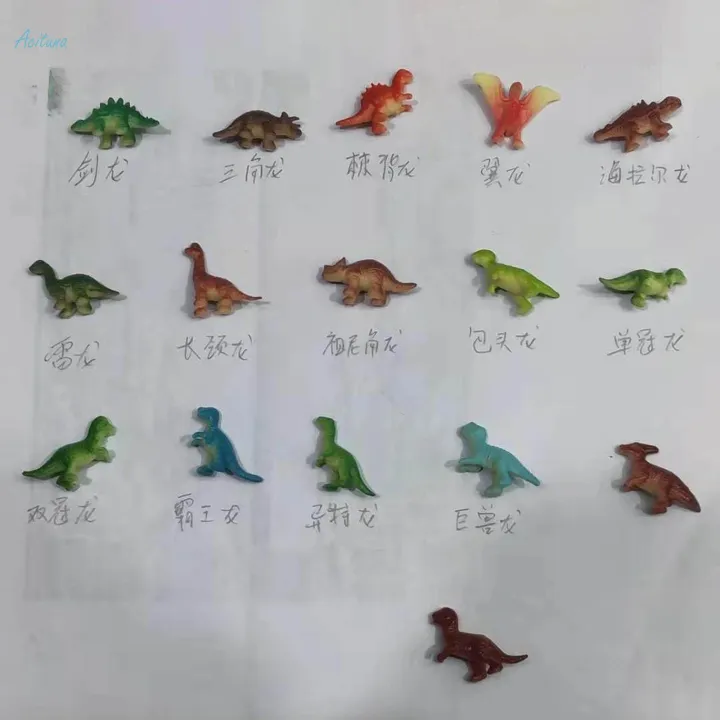 Acitura
剑龙 三角龙 棘背龙 翼龙 海拉尔龙
雷龙 长颈龙 祖尼角龙 包头龙 单冠龙
双冠龙 霸王龙 异特龙 巨兽龙